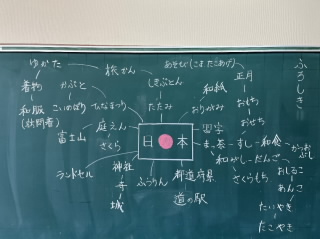 ゆかた
旅かん
あそび(こま たこあげ)
ふろしき
着物
かぶと
しきぶとん
和紙
正月
和服
こいのぼり
ひなまつり
たたみ
おりがみ
おもち
おせち
富士山
庭えん
さくら
日本
習字
まっ茶
すし
和食
かつおぶし
和がし
だんご
おしるこ
さくらもち
あんこ
たいやき
たこやき
ランドセル
神社
寺
城
ふうりん
都道府県
道の駅